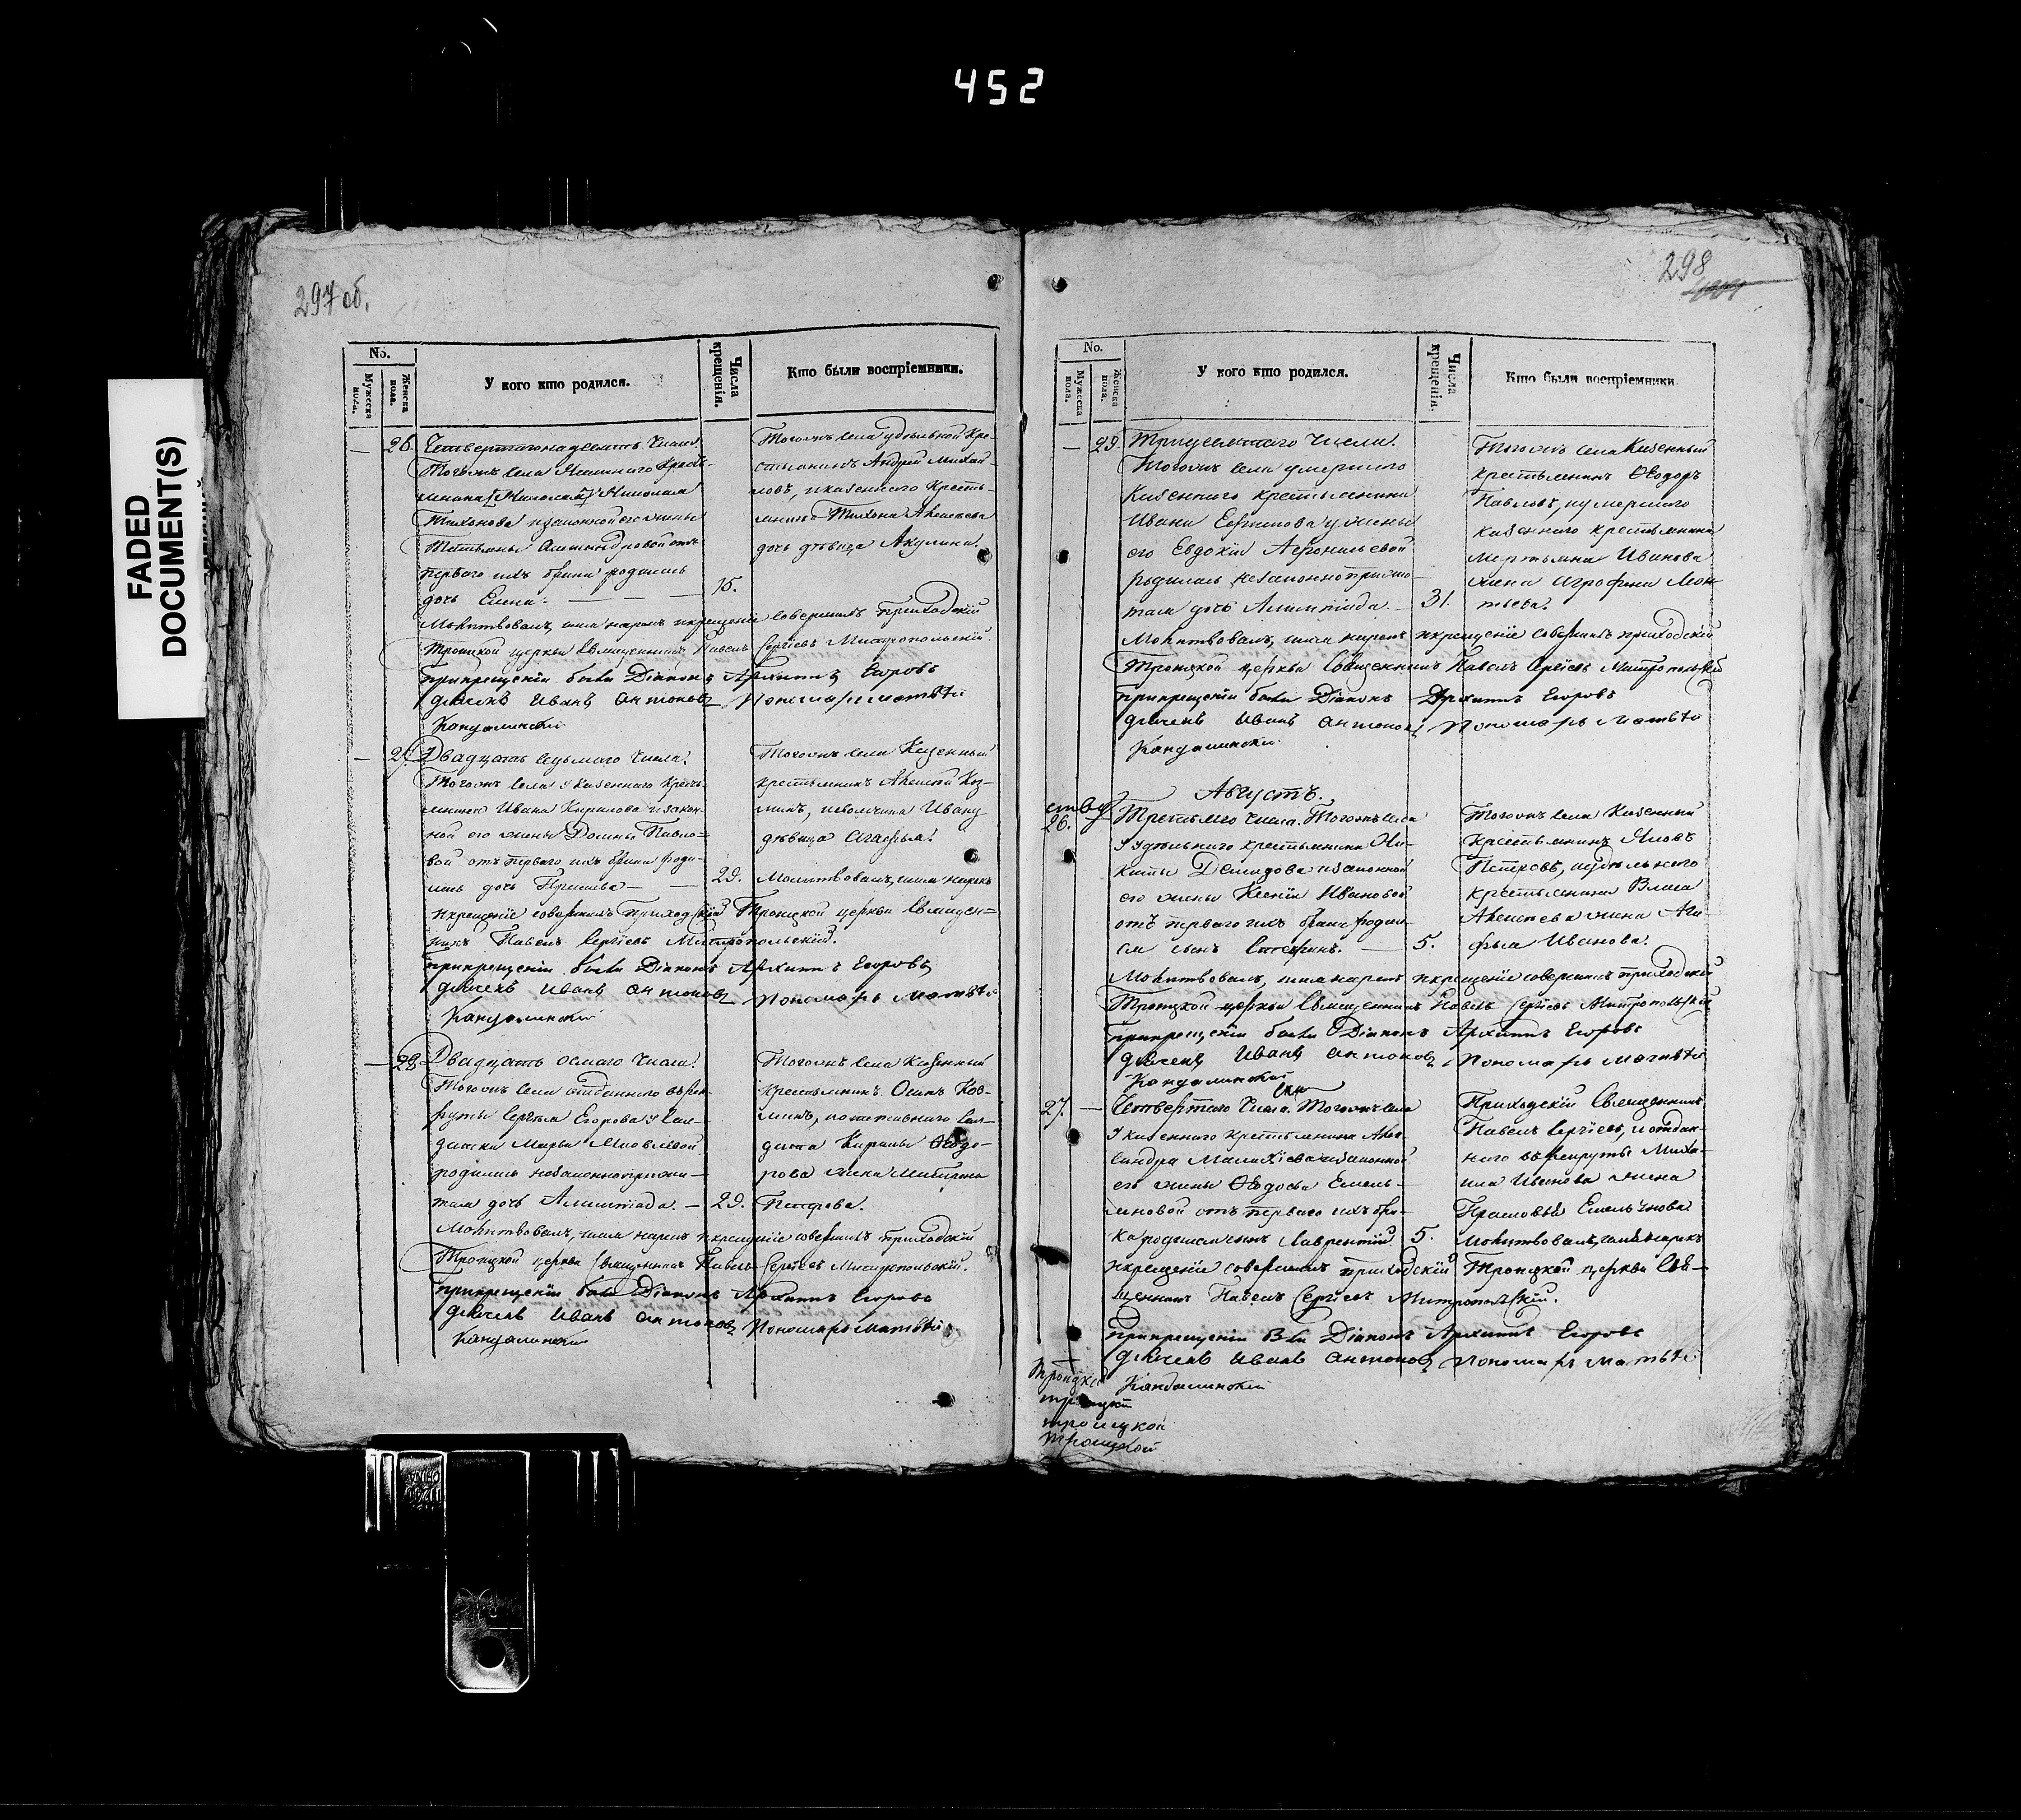 452
FADED
DOCUMENT(S)
297 об.
No.
Мужеска пола.
Женска пола.
У кого кто родился.
Числа крещенія.
Кто были воспріемники.
26.
Четвертагонадесять числа.
Тогожъ села
Тихонова и законной его жены
Татьяны Александровой отъ
перваго ихъ брака родилась
дочь Елена. 15.
Тогожъ села удѣльной кре-
стьянинъ Андрей Михай-
ловъ, и казеннаго кресть-
янина Тихона Алексеева
дочь дѣвица Акулина.
Молитвовалъ, имя нарекъ и крещеніе совершилъ приходскій
Троицкой церкви священникъ Павелъ Сергіевъ Митропольскій.
при крещеніи были Діаконъ Архиппъ Егоровъ
дьячекъ Иванъ Антоновъ Пономарь Матвѣй
Кандалинской
27.
Двадцать седьмаго числа.
Тогожъ села у казеннаго кресть-
янина Ивана Кирилова и закон-
ной его жены Домны Павло-
вой отъ перваго ихъ брака роди-
лась дочь 29.
Тогожъ села Казенный
крестьянинъ Алексей Коз-
минъ,
дѣвица Агафья.
Молитвовалъ, имя нарекъ
и крещеніе совершилъ Приходскій Троицкой церкви священ-
никъ Павелъ Сергіевъ Митропольскій.
при крещеніи были Діаконъ Архиппъ Егоровъ
дьячекъ Иванъ Антоновъ Пономарь Матвѣй
Кандалинской
28.
Двадцать осмаго числа.
Тогожъ села отданнаго въ рек-
руты Сергѣя Егорова у сол-
датки Марьи Яковлевой
родилась незаконноприжи-
тая дочь Алимпіада. 29.
Тогожъ села Казенный
Крестьянинъ Осипъ Коз-
минъ, и отставнаго сол-
дата Кирилы Ѳедо-
рова жена Матрена
Петрова.
Молитвовалъ, имя нарекъ и крещеніе совершилъ приходскій
Троицкой церкви священникъ Павелъ Сергіевъ Митропольскій.
при крещеніи были Діаконъ Архиппъ Егоровъ
дьячекъ Иванъ Антоновъ Пономарь Матвѣй
Кандалинской
298
No.
Мужеска пола.
Женска пола.
У кого кто родился.
Числа крещенія.
Кто были воспріемники.
29.
Тридесятаго числа.
Тогожъ села умершаго
Казеннаго крестьянина
Ивана Ефимова у жены
его Евдокіи
родилась незаконноприжи-
тая дочь Алимпіада. 31.
Тогожъ села Казенный
крестьянинъ Ѳеодоръ
Павловъ, и умершаго
казеннаго крестьянина
Мартьяна Иванова
жена Аграфена
Молитвовалъ, имя нарекъ и крещеніе совершилъ приходскій
Троицкой церкви священникъ Павелъ Сергіевъ Митропольскій
при крещеніи были Діаконъ Архиппъ Егоровъ
дьячекъ Иванъ Антоновъ Пономарь Матвѣй
Кандалинской
Августъ.
26.
Третьяго числа. Тогожъ села
у удѣльнаго крестьянина Ни-
киты Демидова и законной
его жены Ксеніи Ивановой
отъ перваго ихъ брака родил-
ся сынъ Стефанъ. 5.
Тогожъ села Казенный
крестьянинъ Яковъ
Петровъ, и удѣльнаго
крестьянина Власа
Алексеева жена Ага-
фья Иванова.
Молитвовалъ, имя нарекъ и крещеніе совершилъ приходскій
Троицкой церкви священникъ Павелъ Сергіевъ Митропольскій.
при крещеніи были Діаконъ Архиппъ Егоровъ
дьячекъ Иванъ Антоновъ Пономарь Матвѣй
Кандалинской
27.
Четвертаго числа. Тогожъ села
у казеннаго крестьянина Алек-
сандра Малахіева и законной
его жены Ѳедосьи Емель-
яновой отъ перваго ихъ бра-
ка родился сынъ Лаврентій. 5.
Приходскій священникъ
Павелъ Сергіевъ, и отдан-
наго въ рекруты Миха-
ила Иванова жена
Прасковья Емельянова
Молитвовалъ, имя нарекъ
и крещеніе совершилъ приходскій Троицкой церкви Свя-
щенникъ Павелъ Сергіевъ Митропольскій.
при крещеніи были Діаконъ Архиппъ Егоровъ
дьячекъ Иванъ Антоновъ Пономарь Матвѣй
Кандалинской
троицкой
троицкой